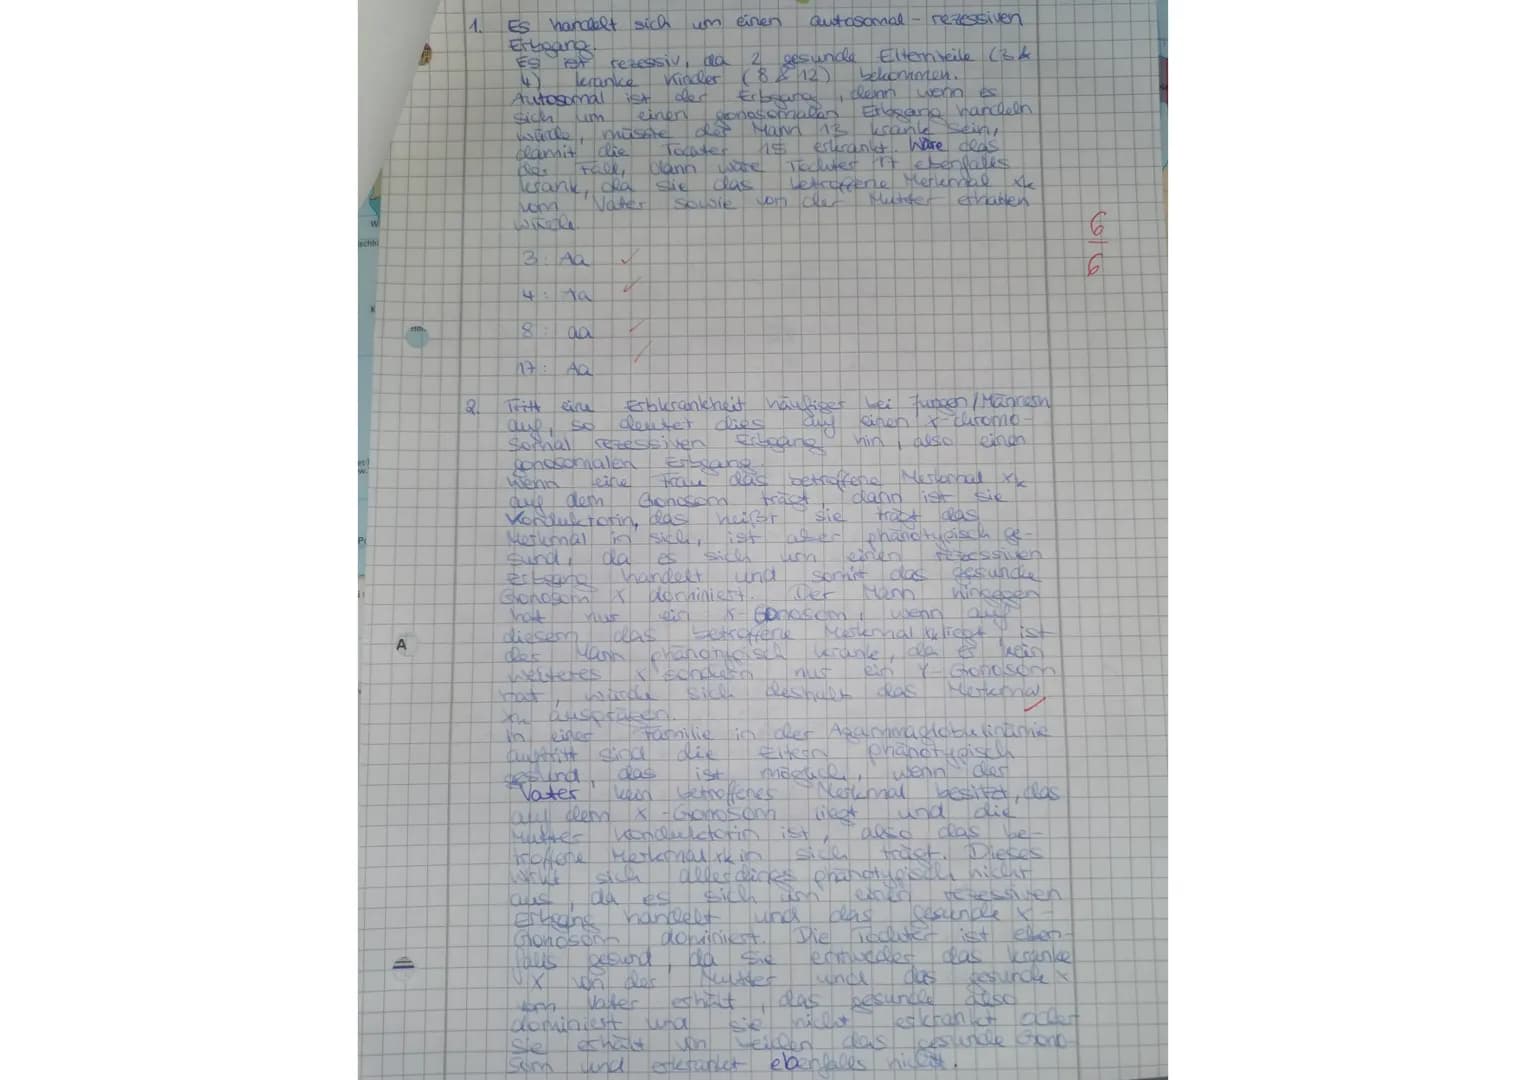 1. Es handelt sich um einen autosomal-rezessiven
Erbgang.
Es ist rezessiv, da 2 gesunde Elternteile (3 &
4) kranke Kinder (8 & 12) bekommen.
Autosomal ist der Erbgang, denn wenn es
sich um einen gonosomalen Erbgang handeln
würde, müsste der Mann 13 krank sein,
damit die Tochter 15 erkrankt. Wäre das
der Fall, dann wäre Tochter 17 ebenfalls
krank, da sie das betroffene Merkmal xk
vom Vater sowie von der Mutter erhalten
würde.
6
6
3: Aa
4: Aa
8: aa
17: Aa
2. Tritt eine Erbkrankheit häufiger bei Jungen/Männern
auf, so deutet dies auf einen x-chromo-
somal rezessiven Erbgang hin, also einen
gonosomalen Erbgang.
Wenn eine Frau das betroffene Merkmal xk
auf dem Gonosom trägt, dann ist sie
Konduktorin, das heißt sie trägt das
Merkmal in sich, ist aber phänotypisch ge-
sund, da es sich um einen rezessiven
Erbgang handelt und somit das gesunde
Gonosom X dominiert. Der Mann hingegen
hat nur ein X-Gonosom, wenn auf
diesem das betroffene Merkmal xk liegt, ist
der Mann phänotypisch krank, da er kein
weiteres X sondern nur ein Y-Gonosom
hat, würde sich deshalb das Merkmal
xk ausprägen.
In einer Familie in der Agammaglobulinämie
auftritt sind die Eltern phänotypisch
gesund, das ist möglich, wenn der
Vater kein betroffenes Merkmal besitzt, das
auf dem X-Gonosom liegt und die
Mutter Konduktorin ist, also das be-
troffene Merkmal xk in sich trägt. Dieses
wirkt sich allerdings phänotypisch nicht
aus, da es sich um einen rezessiven
Erbgang handelt und das gesunde X-
Gonosom dominiert. Die Tochter ist eben-
falls gesund, da sie entweder das kranke
X von der Mutter und das gesunde X
vom Vater erhält, das gesunde also
dominiert und sie nicht erkrankt oder
sie erhält von beiden das gesunde Gono-
som und erkrankt ebenfalls nicht.
A